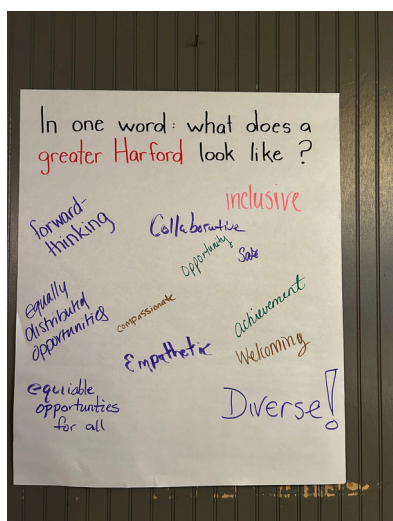 In one word: what does a
greater Harford look like ?
inclusive
forward-
thinking
Collaborative
opportunity
Safe
equally
distributed
opportunities
compassionate
achievement
Empathetic
Welcoming
equiiable
opportunties
for all
Diverse!